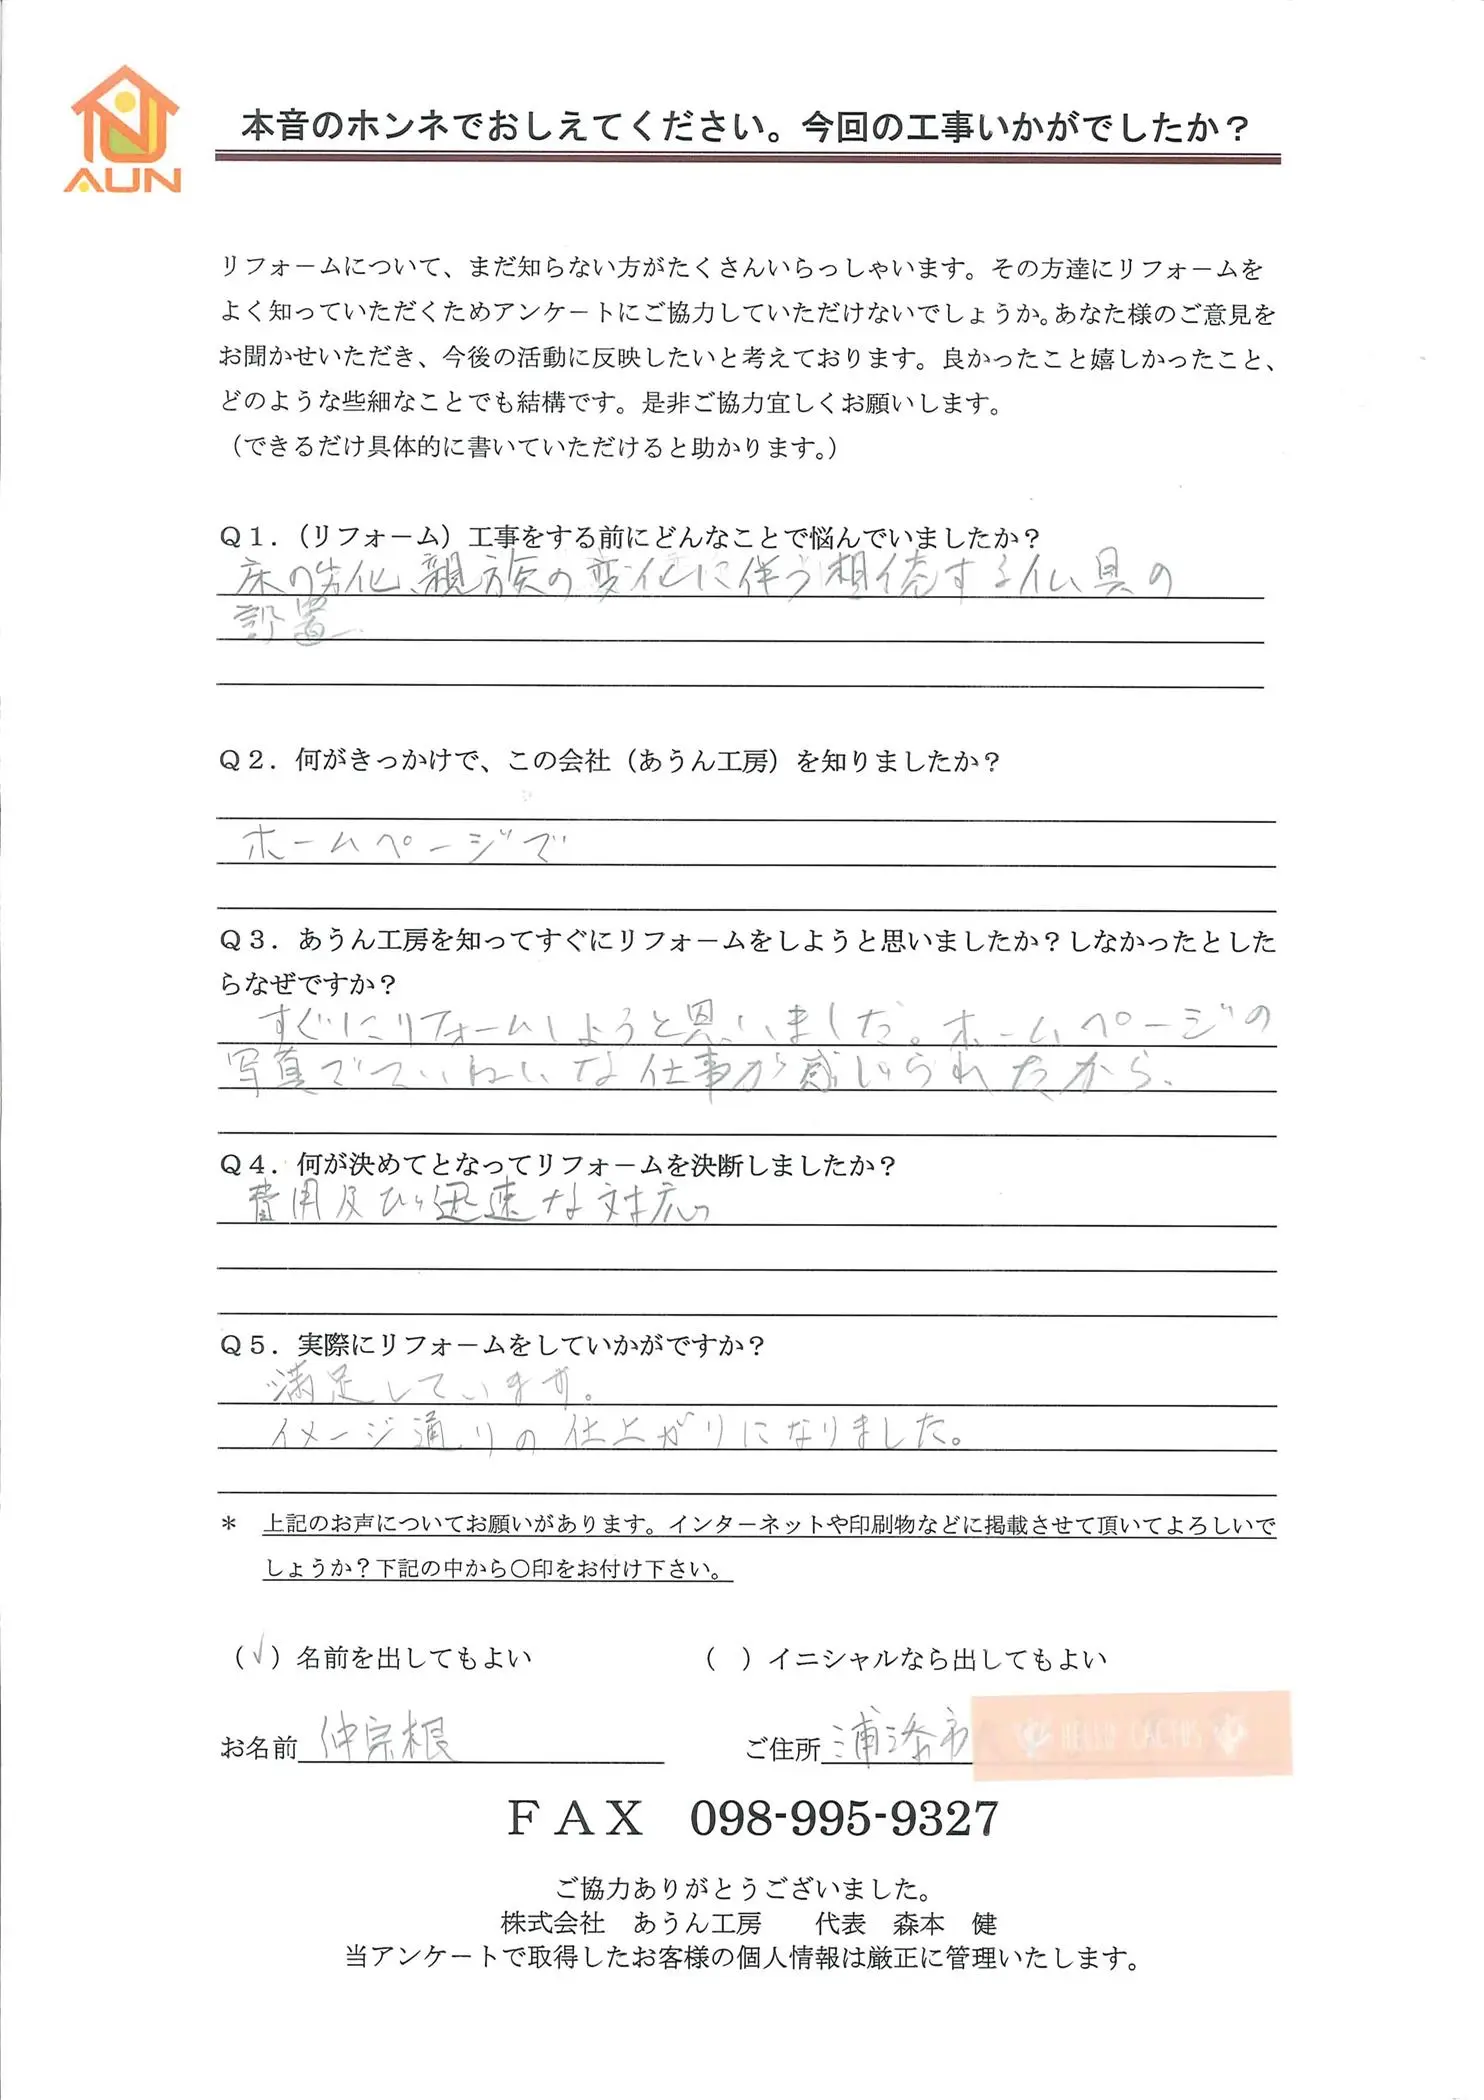 AUN
本音のホンネでおしえてください。今回の工事いかがでしたか？
リフォームについて、まだ知らない方がたくさんいらっしゃいます。その方達にリフォームを
よく知っていただくためアンケートにご協力していただけないでしょうか。あなた様のご意見を
お聞かせいただき、今後の活動に反映したいと考えております。良かったこと嬉しかったこと、
どのような些細なことでも結構です。是非ご協力宜しくお願いします。
（できるだけ具体的に書いていただけると助かります。）
Ｑ１．（リフォーム）工事をする前にどんなことで悩んでいましたか？
床の劣化、親族の変化に伴う相続する仏具の
設置
Ｑ２．何がきっかけで、この会社（あうん工房）を知りましたか？
ホームページで
Ｑ３．あうん工房を知ってすぐにリフォームをしようと思いましたか？しなかったとした
らなぜですか？
すぐにリフォームしようと思いました。ホームページの
写真でていねいな仕事が感じられたから、
Ｑ４．何が決めてとなってリフォームを決断しましたか？
費用及び迅速な対応
Ｑ５．実際にリフォームをしていかがですか？
満足しています。
イメージ通りの仕上がりになりました。
＊　上記のお声についてお願いがあります。インターネットや印刷物などに掲載させて頂いてよろしいで
しょうか？下記の中から〇印をお付け下さい。
（✓）名前を出してもよい　（　）イニシャルなら出してもよい
お名前 仲宗根　ご住所 浦添市 HELLO CACTUS
ＦＡＸ　098-995-9327
ご協力ありがとうございました。
株式会社　あうん工房　　代表　森本　健
当アンケートで取得したお客様の個人情報は厳正に管理いたします。